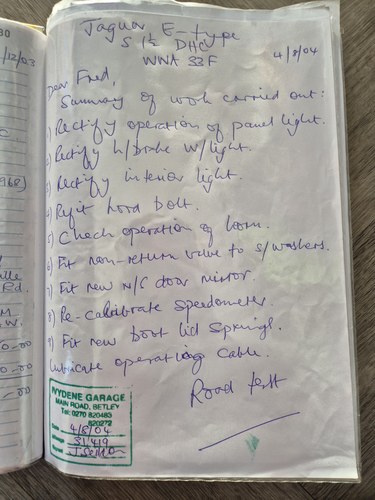 30
/12/03
Jaguar E-type
S 1½ DHC
WNA 33F
4/8/04
Dear Fred,
Summary of work carried out:
1) Rectify operation of panel light.
2) Rectify h/brake w/light.
3) Rectify interior light.
4) Refit hood bolt.
5) Check operation of horn.
6) Fit non-return valve to s/washers.
7) Fit new N/S door mirror.
8) Re-calibrate speedometer.
9) Fit new boot lid springs.
Lubricate operating cable.
Road test
968)
IVYDENE GARAGE
MAIN ROAD, BETLEY
Tel: 0270 820483
820272
Date 4/8/04
Mileage 31,419
Signed